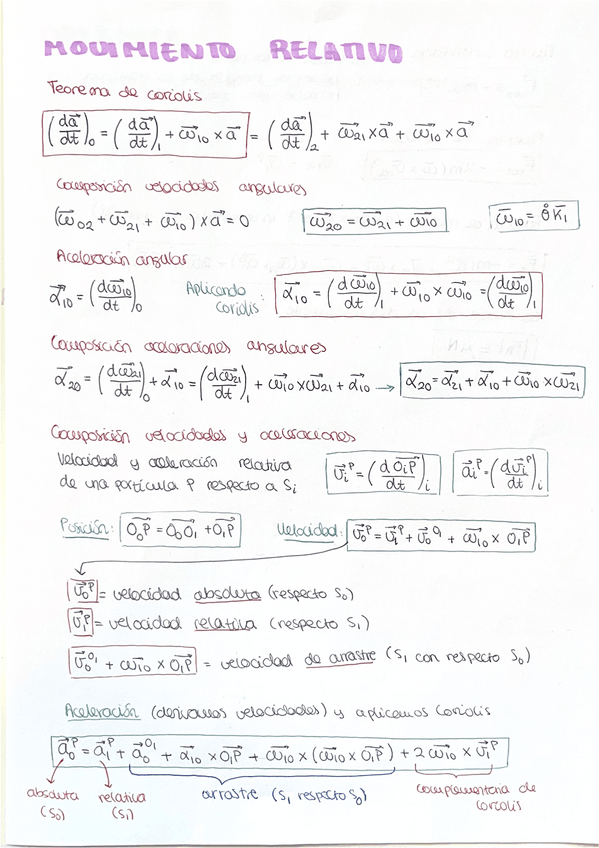 MOVIMIENTO RELATIVO
Teorema de coriolis
(da⃗/dt)₀ = (da⃗/dt)₁ + ω⃗₁₀ × a⃗ = (da⃗/dt)₂ + ω⃗₂₁ × a⃗ + ω⃗₁₀ × a⃗
Composición velocidades angulares
(ω⃗₀₂ + ω⃗₂₁ + ω⃗₁₀) × a⃗ = 0 ω⃗₂₀ = ω⃗₂₁ + ω⃗₁₀ ω⃗₁₀ = θ̊ K⃗₁
Aceleración angular
α⃗₁₀ = (dω⃗₁₀/dt)₀ Aplicando coriolis: α⃗₁₀ = (dω⃗₁₀/dt)₁ + ω⃗₁₀ × ω⃗₁₀ = (dω⃗₁₀/dt)₁
Composición aceleraciones angulares
α⃗₂₀ = (dω⃗₂₁/dt)₀ + α⃗₁₀ = (dω⃗₂₁/dt)₁ + ω⃗₁₀ × ω⃗₂₁ + α⃗₁₀ → α⃗₂₀ = α⃗₂₁ + α⃗₁₀ + ω⃗₁₀ × ω⃗₂₁
Composición velocidades y aceleraciones
Velocidad y aceleración relativa
de una partícula P respecto a Sᵢ v⃗ᵢᴾ = (d OᵢP⃗/dt)ᵢ a⃗ᵢᴾ = (dv⃗ᵢ⃗ᴾ/dt)ᵢ
Posición: O₀P⃗ = O₀O₁⃗ + O₁P⃗ Velocidad: v⃗₀ᴾ = v⃗₁ᴾ + v⃗₀ᴼ¹ + ω⃗₁₀ × O₁P⃗
v⃗₀ᴾ = velocidad absoluta (respecto S₀)
v⃗₁ᴾ = velocidad relativa (respecto S₁)
v⃗₀ᴼ¹ + ω⃗₁₀ × O₁P⃗ = velocidad de arrastre (S₁ con respecto S₀)
Aceleración (derivamos velocidades) y aplicamos Coriolis
a⃗₀ᴾ = a⃗₁ᴾ + a⃗₀ᴼ¹ + α⃗₁₀ × O₁P⃗ + ω⃗₁₀ × (ω⃗₁₀ × O₁P⃗) + 2 ω⃗₁₀ × v⃗₁ᴾ
absoluta (S₀)
relativa (S₁)
arrastre (S₁ respecto S₀)
complementaria de coriolis